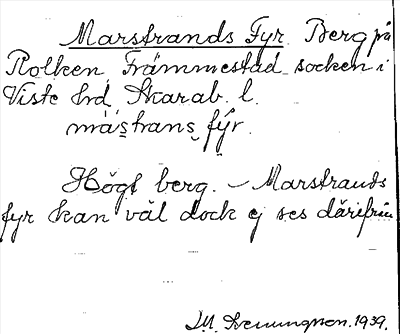 Marstrands Fyr. Berg på
Rolken, Främmestad socken i
Viste hd, Skarab. l.
másstrans fýr.
Högt berg. – Marstrands
fyr kan väl dock ej ses därifrån
M. Svenungsson. 1939.